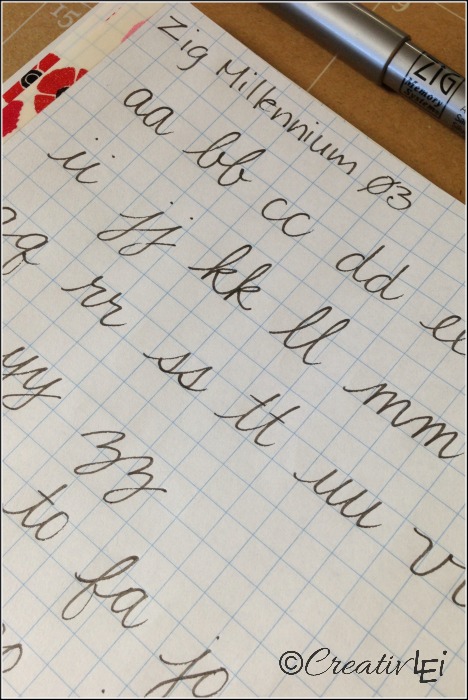 ZIG
Memory
System
Zig Millennium 03
aa bb cc dd ee
ii jj kk ll mm
qq rr ss tt uu v
yy zz
to fa jo
©CreativLEi